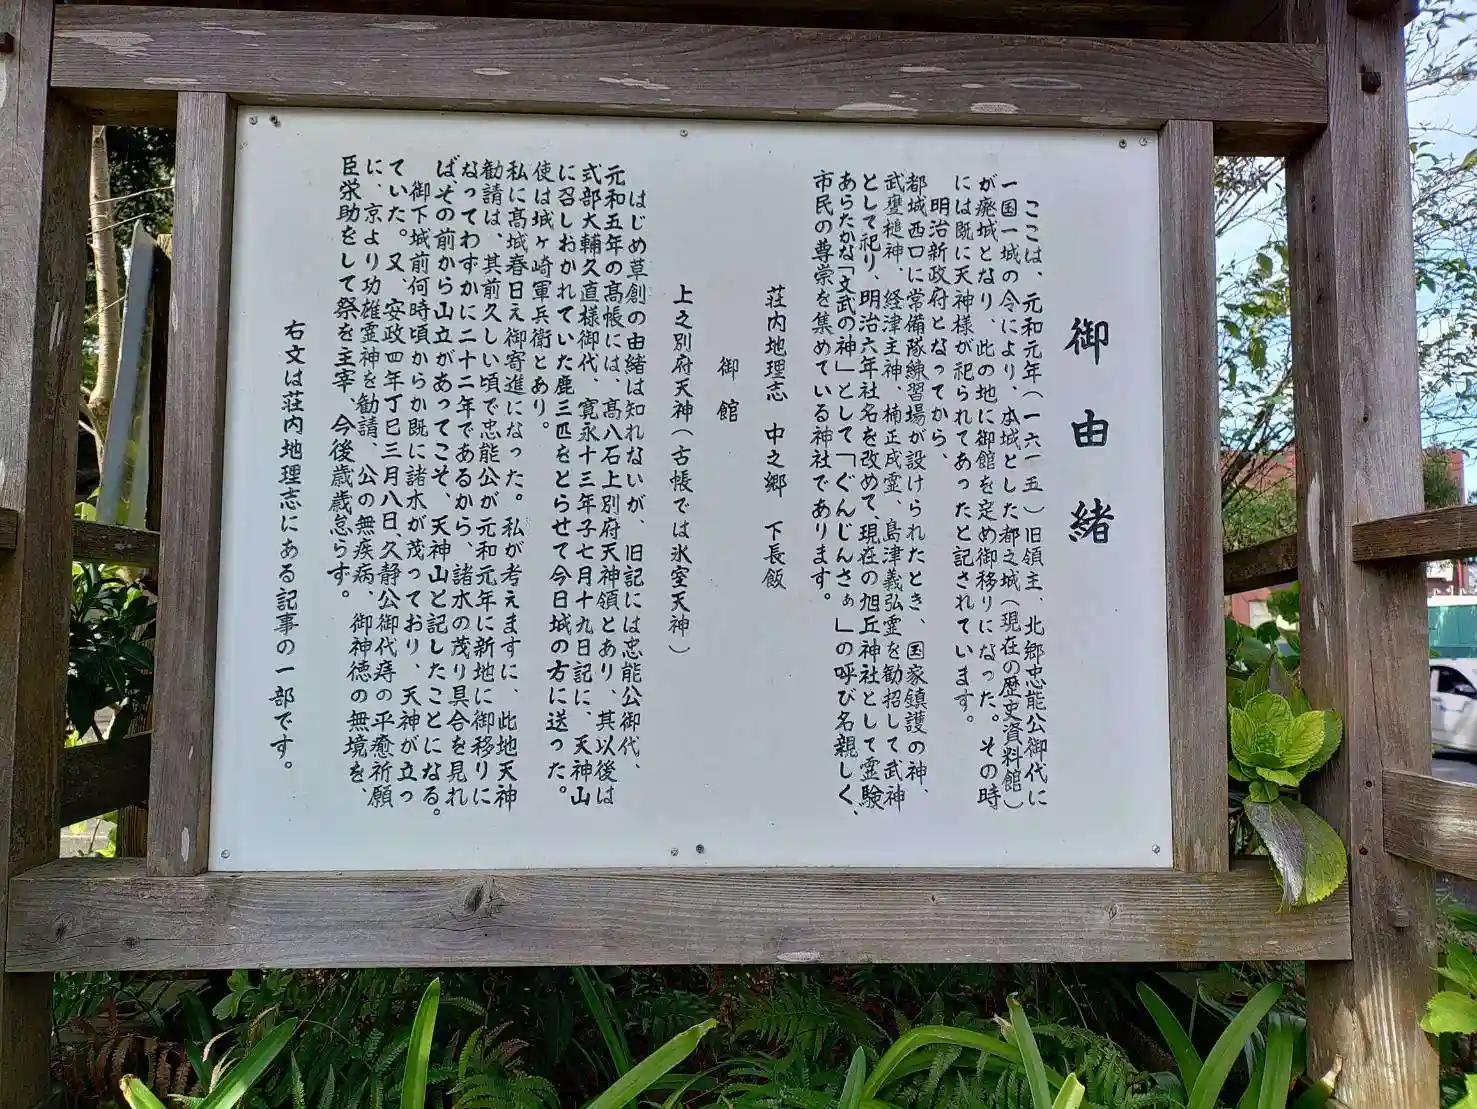 御由緒
ここは、元和元年（一六一五）旧領主、北郷忠能公御代に
一国一城の令により、本城とした都之城（現在の歴史資料館）
が廃城となり、此の地に御館を定め御移りになった。その時
には既に天神様が祀られてあったと記されています。
明治新政府となってから、
都城西口に常備隊練習場が設けられたとき、国家鎮護の神、
武甕槌神、経津主神、楠正成霊、島津義弘霊を勧招して武神
として祀り、明治六年社名を改めて、現在の旭丘神社として霊験
あらたかな「文武の神」として「ぐんじんさぁ」の呼び名親しく、
市民の尊崇を集めている神社であります。
荘内地理志　中之郷　下長飯
御館
上之別府天神（古帳では氷室天神）
はじめ草創の由緒は知れないが、旧記には忠能公御代、
元和五年の高帳には、高八石上別府天神領とあり、其以後は
式部大輔久直様御代、寛永十三年子七月十九日記に、天神山
に召しおかれていた鹿三匹をとらせて今日城の方に送った。
使は城ヶ崎軍兵衛とあり。
私に高城春日え御寄進になった。私が考えますに、此地天神
勧請は、其前久しい頃で忠能公が元和元年に新地に御移りに
なってわずかに二十二年であるから、諸木の茂り具合を見れ
ばその前から山立があってこそ、天神山と記したことになる。
御下城前何時頃からか既に諸木が茂っており、天神が立っ
ていた。又、安政四年丁巳三月八日、久静公御代痔の平癒祈願
に、京より功雄霊神を勧請、公の無疾病、御神徳の無境を、
臣栄助をして祭を主宰、今後歳歳怠らす。
右文は荘内地理志にある記事の一部です。